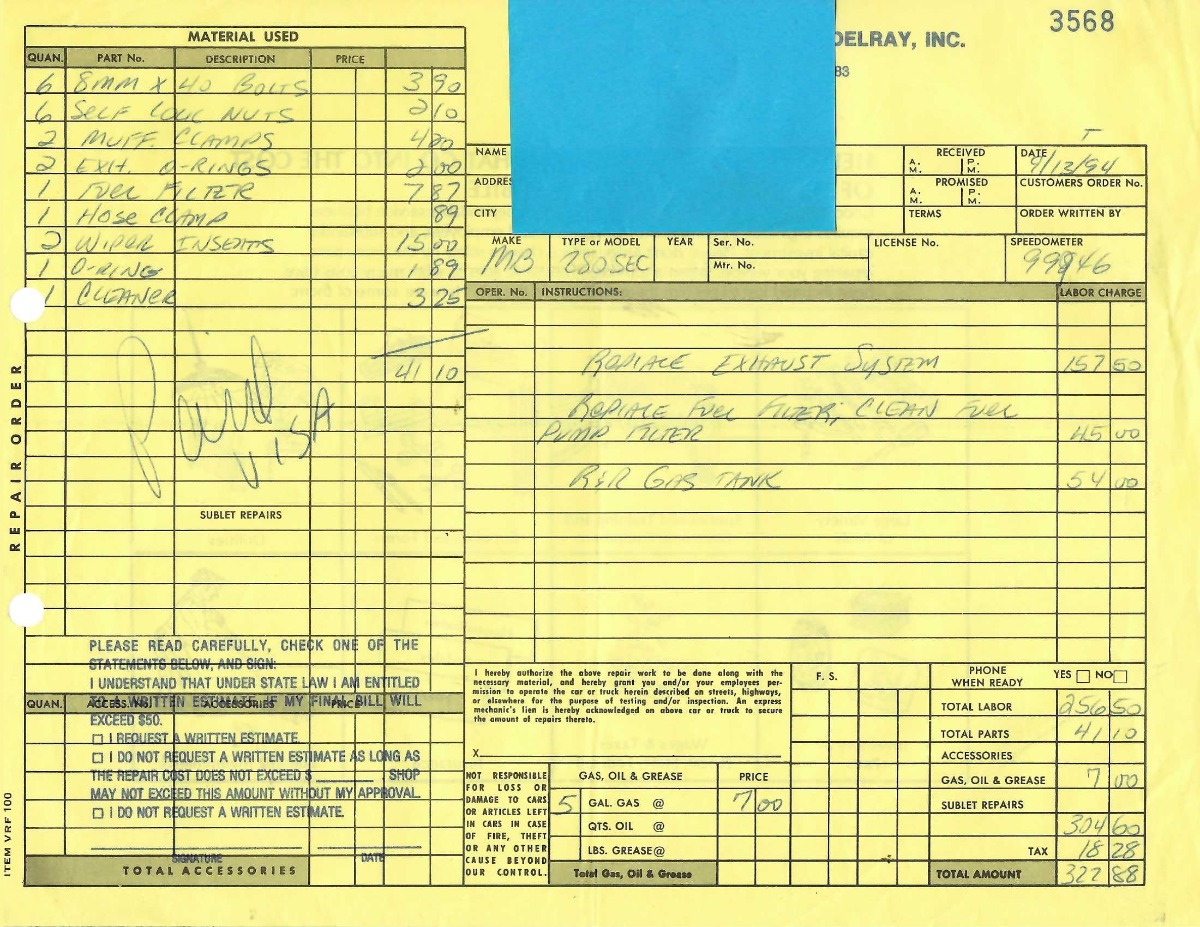 3568
DELRAY, INC.
83
MATERIAL USED
QUAN. PART No. DESCRIPTION PRICE
6 8MM X 40 BOLTS 3 90
6 SELF LOCK NUTS 2 10
2 MUFF. CLAMPS 4 20
2 EXH. O-RINGS 2 00
1 FUEL FILTER 7 87
1 HOSE CLAMP 89
2 WIPER INSERTS 15 00
1 O-RING 1 89
1 CLEANER 3 25
41 10
Paid
VISA
SUBLET REPAIRS
REPAIR ORDER
ITEM VRF 100
PLEASE READ CAREFULLY, CHECK ONE OF THE
STATEMENTS BELOW, AND SIGN:
I UNDERSTAND THAT UNDER STATE LAW I AM ENTITLED
TO A WRITTEN ESTIMATE IF MY FINAL BILL WILL
EXCEED $50.
QUAN. ACCESS. No. ACCESSORIES PRICE
☐ I REQUEST A WRITTEN ESTIMATE.
☐ I DO NOT REQUEST A WRITTEN ESTIMATE AS LONG AS
THE REPAIR COST DOES NOT EXCEED $ ________ SHOP
MAY NOT EXCEED THIS AMOUNT WITHOUT MY APPROVAL.
☐ I DO NOT REQUEST A WRITTEN ESTIMATE.
SIGNATURE DATE
TOTAL ACCESSORIES
T
NAME
ADDRES
CITY
RECEIVED
A. M. P. M.
DATE
9/13/94
PROMISED
A. M. P. M.
CUSTOMERS ORDER No.
TERMS
ORDER WRITTEN BY
MAKE TYPE or MODEL YEAR Ser. No. LICENSE No. SPEEDOMETER
MB 280SEC
Mtr. No.
OPER. No. INSTRUCTIONS: LABOR CHARGE
REPLACE EXHAUST SYSTEM 157 50
REPLACE FUEL FILTER; CLEAN FUEL
PUMP FILTER 45 00
R&R GAS TANK 54 00
I hereby authorize the above repair work to be done along with the
necessary material, and hereby grant you and/or your employees per-
mission to operate the car or truck herein described on streets, highways,
or elsewhere for the purpose of testing and/or inspection. An express
mechanic's lien is hereby acknowledged on above car or truck to secure
the amount of repairs thereto.
X
F. S.
PHONE WHEN READY YES ☐ NO ☐
TOTAL LABOR 256 50
TOTAL PARTS 41 10
ACCESSORIES
GAS, OIL & GREASE 7 00
SUBLET REPAIRS
304 60
TAX 18 28
TOTAL AMOUNT 322 88
NOT RESPONSIBLE
FOR LOSS OR
DAMAGE TO CARS
OR ARTICLES LEFT
IN CARS IN CASE
OF FIRE, THEFT
OR ANY OTHER
CAUSE BEYOND
OUR CONTROL.
GAS, OIL & GREASE PRICE
5 GAL. GAS @ 7 00
QTS. OIL @
LBS. GREASE @
Total Gas, Oil & Grease